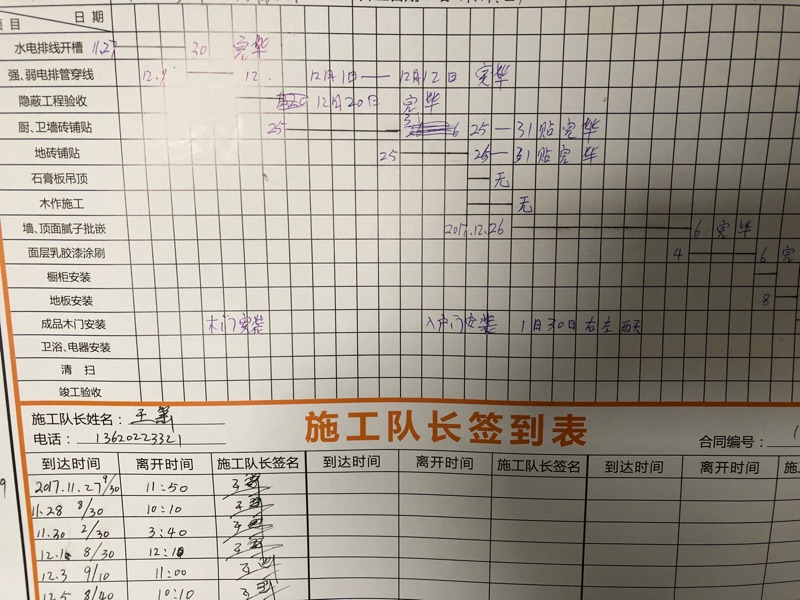 项目 日期
水电排线开槽 11.27 30 完毕
强、弱电排管穿线 12.1 12. 12月1日 — 12月12日 完毕
隐蔽工程验收 12月20日 完毕
厨、卫墙砖铺贴 25 25 — 31贴完毕
地砖铺贴 25 25 — 31贴完毕
石膏板吊顶 无
木作施工 无
墙、顶面腻子批嵌 2017.12.26 6 完毕
面层乳胶漆涂刷 4 6 完
橱柜安装
地板安装 8
成品木门安装 木门安装 入户门安装 1月30日右左两天
卫浴、电器安装
清 扫
竣工验收
施工队长姓名：
电话：13620223321
施工队长签到表
合同编号：
到达时间 离开时间 施工队长签名 到达时间 离开时间 施工队长签名 到达时间 离开时间
2017.11.27 9/30 11:50
11.28 8/30 10:10
11.30 2/30 3:40
12.1 8/30 12:10
12.3 9/10 11:00
12.5 8/40 10:10